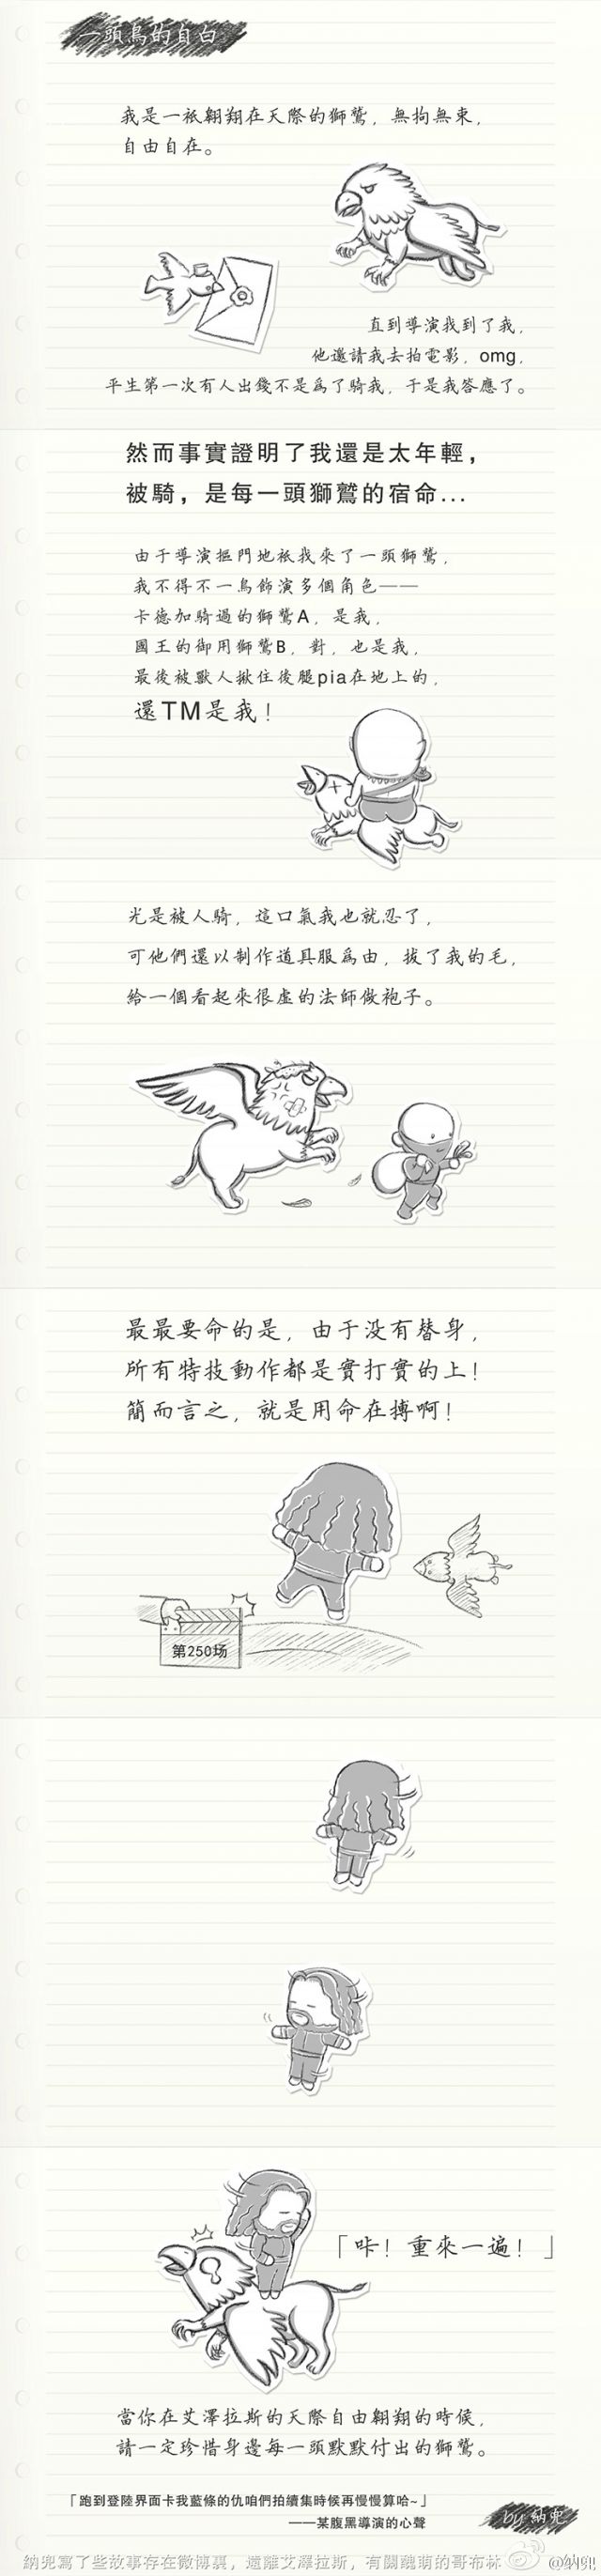 一頭鳥的自白
我是一衹翺翔在天際的獅鷲，無拘無束，
自由自在。
直到導演找到了我，
他邀請我去拍電影，omg，
平生第一次有人出錢不是爲了騎我，于是我答應了。
然而事實證明了我還是太年輕，
被騎，是每一頭獅鷲的宿命...
由于導演摳門地衹找來了一頭獅鷲，
我不得不一鳥飾演多個角色——
卡德加騎過的獅鷲A，是我，
國王的御用獅鷲B，對，也是我，
最後被獸人揪住後腿pia在地上的，
還TM是我！
光是被人騎，這口氣我也就忍了，
可他們還以制作道具服爲由，拔了我的毛，
給一個看起來很虛的法師做袍子。
最最要命的是，由于没有替身，
所有特技動作都是實打實的上！
簡而言之，就是用命在搏啊！
第250场
「咔！重來一遍！」
當你在艾澤拉斯的天際自由翺翔的時候，
請一定珍惜身邊每一頭默默付出的獅鷲。
「跑到登陸界面卡我藍條的仇咱們拍續集時候再慢慢算哈~」
——某腹黑導演的心聲
by 納兜
納兜寫了些故事存在微博裏，遠離艾澤拉斯，有關醜萌的哥布林
@納兜